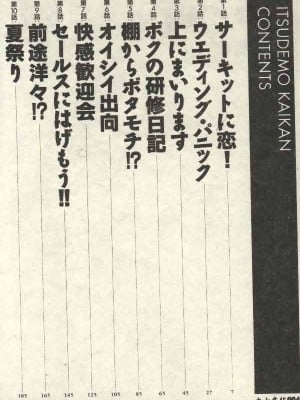 ITSUDEMO KAIKAN
CONTENTS
第1話 サーキットに恋! 7
第2話 ウエディング・パニック 27
第3話 上にまいります 45
第4話 ボクの研修日記 65
第5話 棚からボタモチ!? 85
第6話 オイシイ出向 105
第7話 快感歓迎会 125
第8話 セールスにはげもう!! 145
第9話 前途洋々!? 165
第10話 夏祭り 185